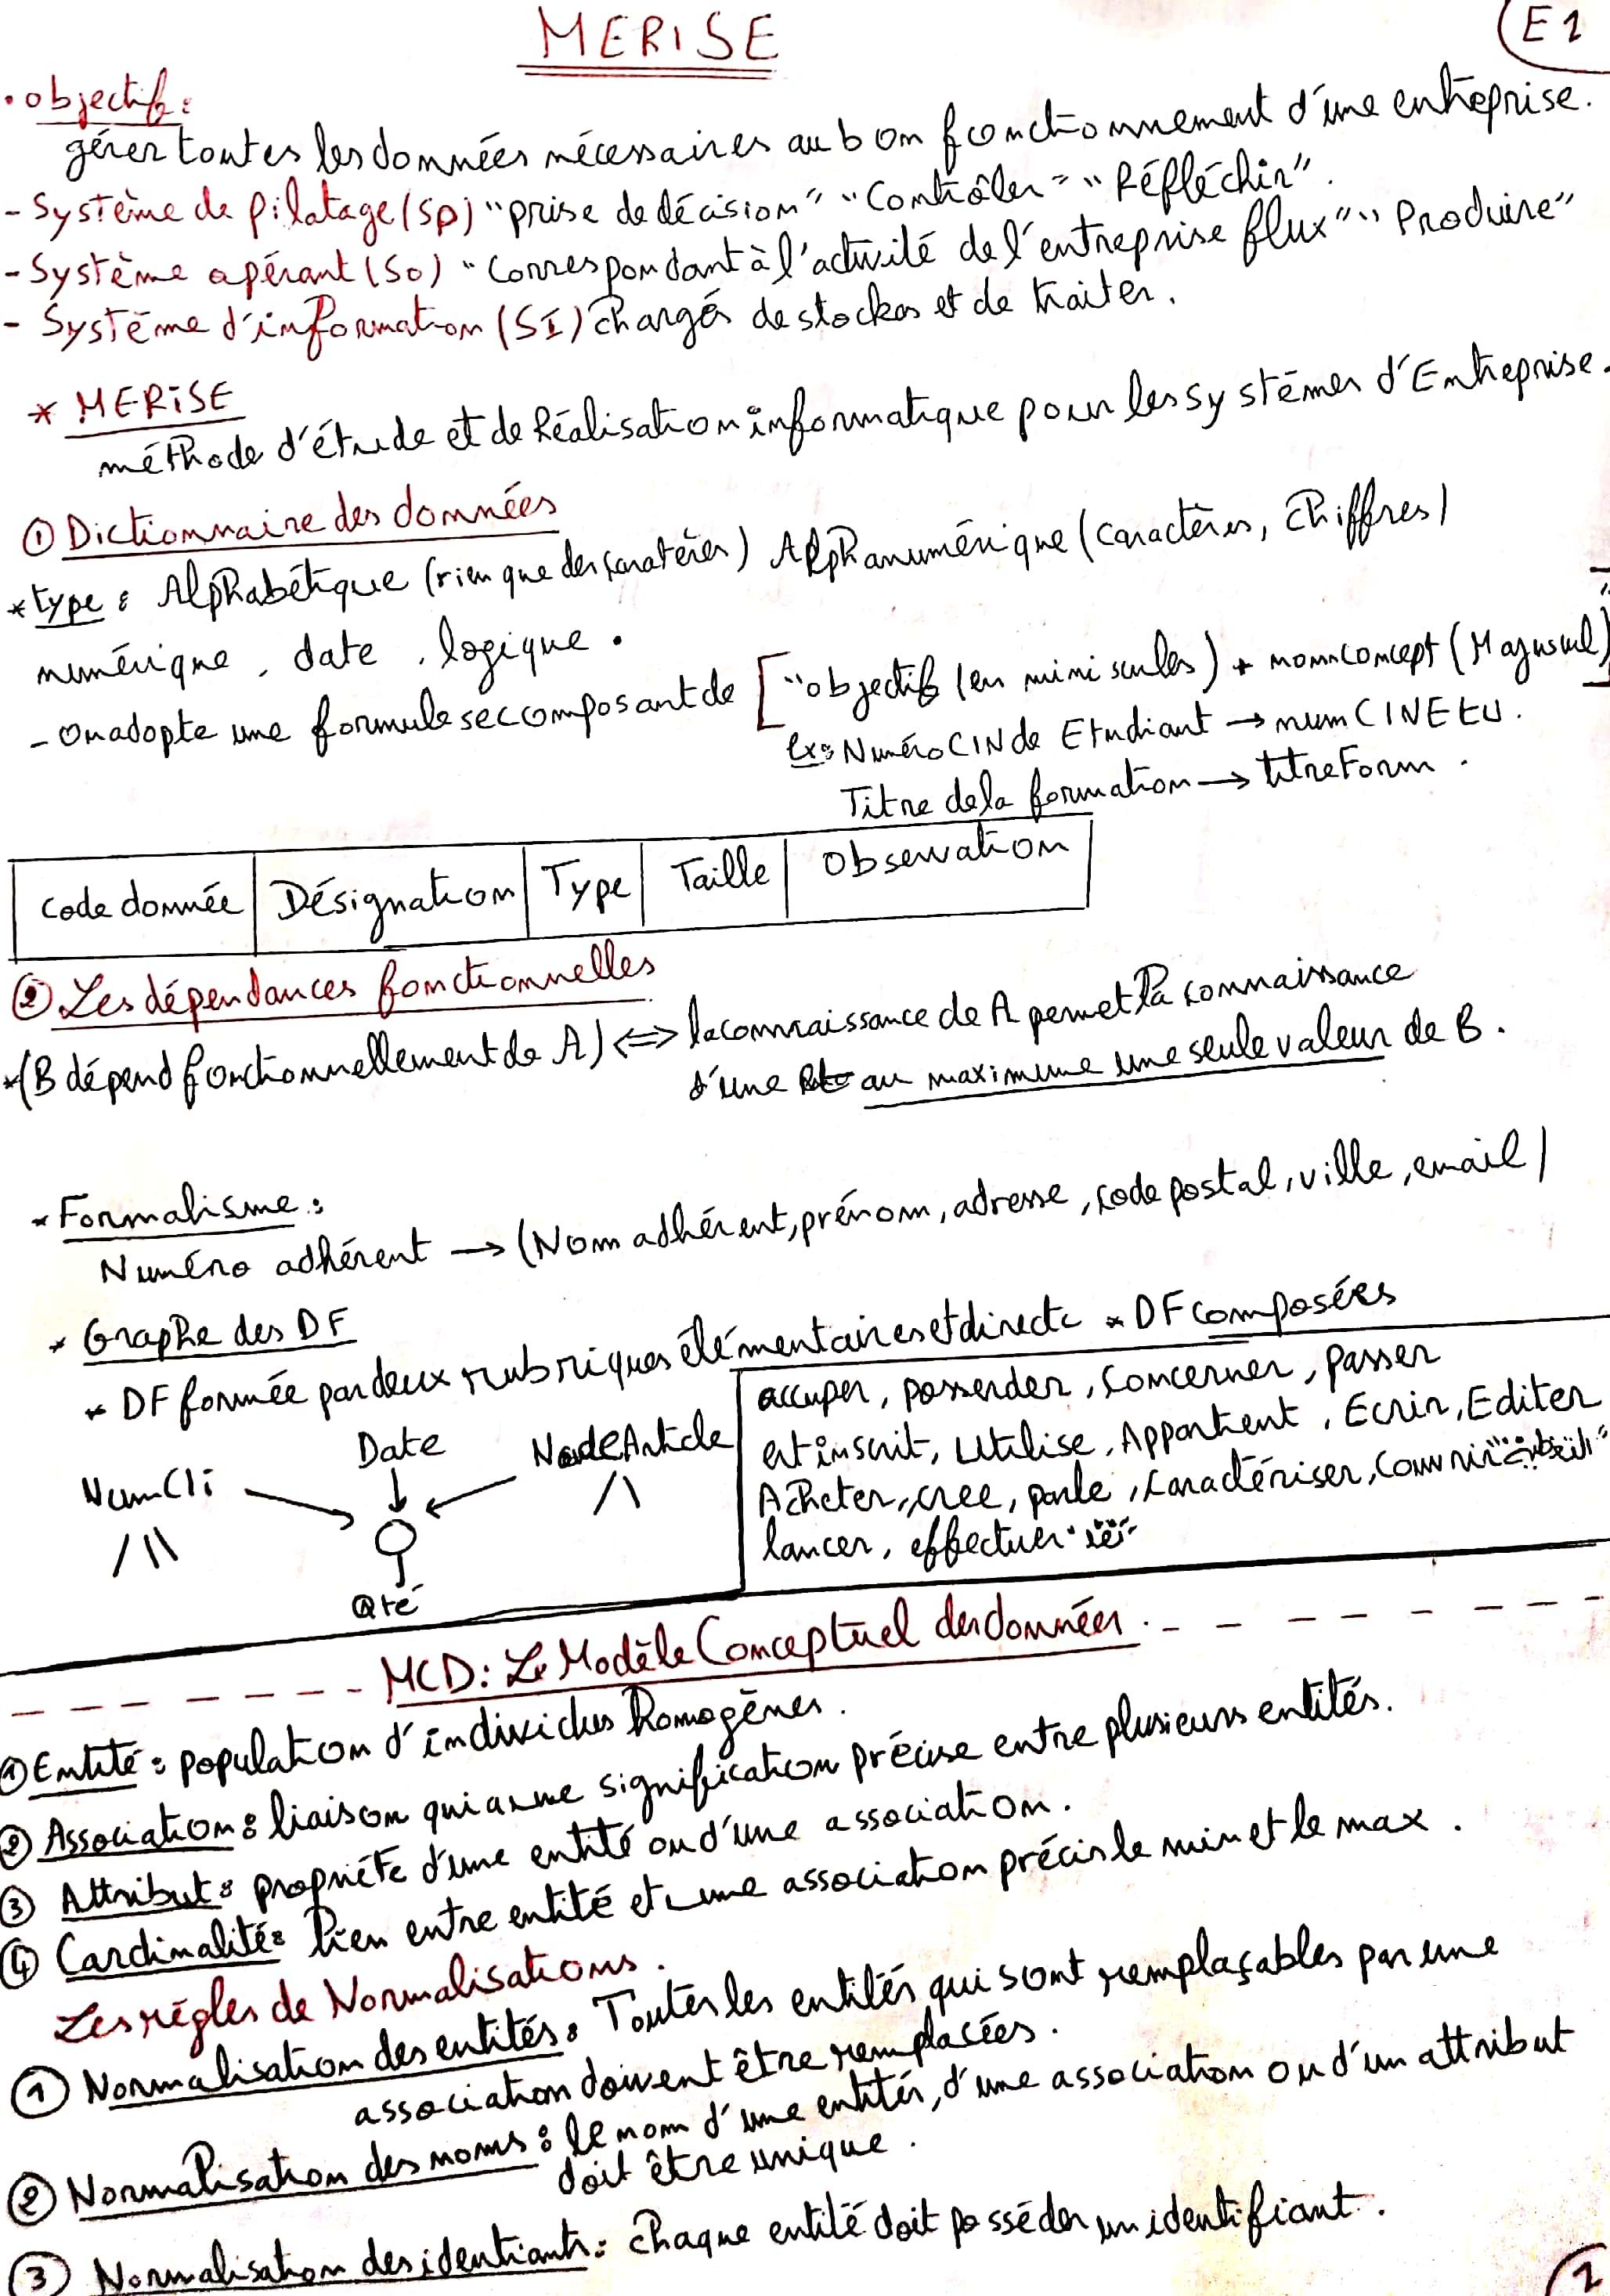 MERISE
E1
• objectifs :
gérer toutes les données nécessaires au bon fonctionnement d'une entreprise.
- Système de pilotage (SP) "prise de décision" "Contrôler" "Réfléchir".
- Système opérant (SO) "Correspondant à l'activité de l'entreprise flux" "Produire"
- Système d'information (SI) chargés de stocker et de traiter.
* MERISE
méthode d'étude et de Réalisation informatique pour les systèmes d'Entreprise.
① Dictionnaire des données
* type : Alphabétique (rien que des caratères) Alphanumérique (caractères, chiffres)
numérique, date, logique.
- On adopte une formule se composant de ["objectif (en miniscules) + nom concept (Majuscul)
ex: Numéro CIN de Etudiant → numCINEtU.
Titre de la formation → titreForm.
code donnée | Désignation | Type | Taille | Observation
② Les dépendances fonctionnelles
*(B dépend fonctionnellement de A) <=> la connaissance de A permet la connaissance
d'une au maximume une seule valeur de B.
* Formalisme :
Numéro adhérent → (Nom adhérent, prénom, adresse, code postal, ville, email)
* Graphe des DF
* DF formée par deux rubriques élémentaires et directe * DF composées
NumCli Date CodeArticle
Qté
occuper, possender, Concerner, passer
est inscrit, Utilise, Appartient, Ecrir, Editer
Acheter, cree, parle, caractériser, Couvrir
lancer, effectuer
MCD: Le Modèle Conceptuel des données.
① Entité : population d'individus homogènes.
② Association : liaison qui a une signification précise entre plusieurs entités.
③ Attribut : propriété d'une entité ou d'une association.
④ Cardinalité : lien entre entité et une association précis le min et le max.
Les règles de Normalisations.
① Normalisation des entités : Toutes les entités qui sont remplaçables par une
association doivent être remplacées.
② Normalisation des noms : le nom d'une entités, d'une association ou d'un attribut
doit être unique.
③ Normalisation des identiants : chaque entité doit posséder un identifiant.
1